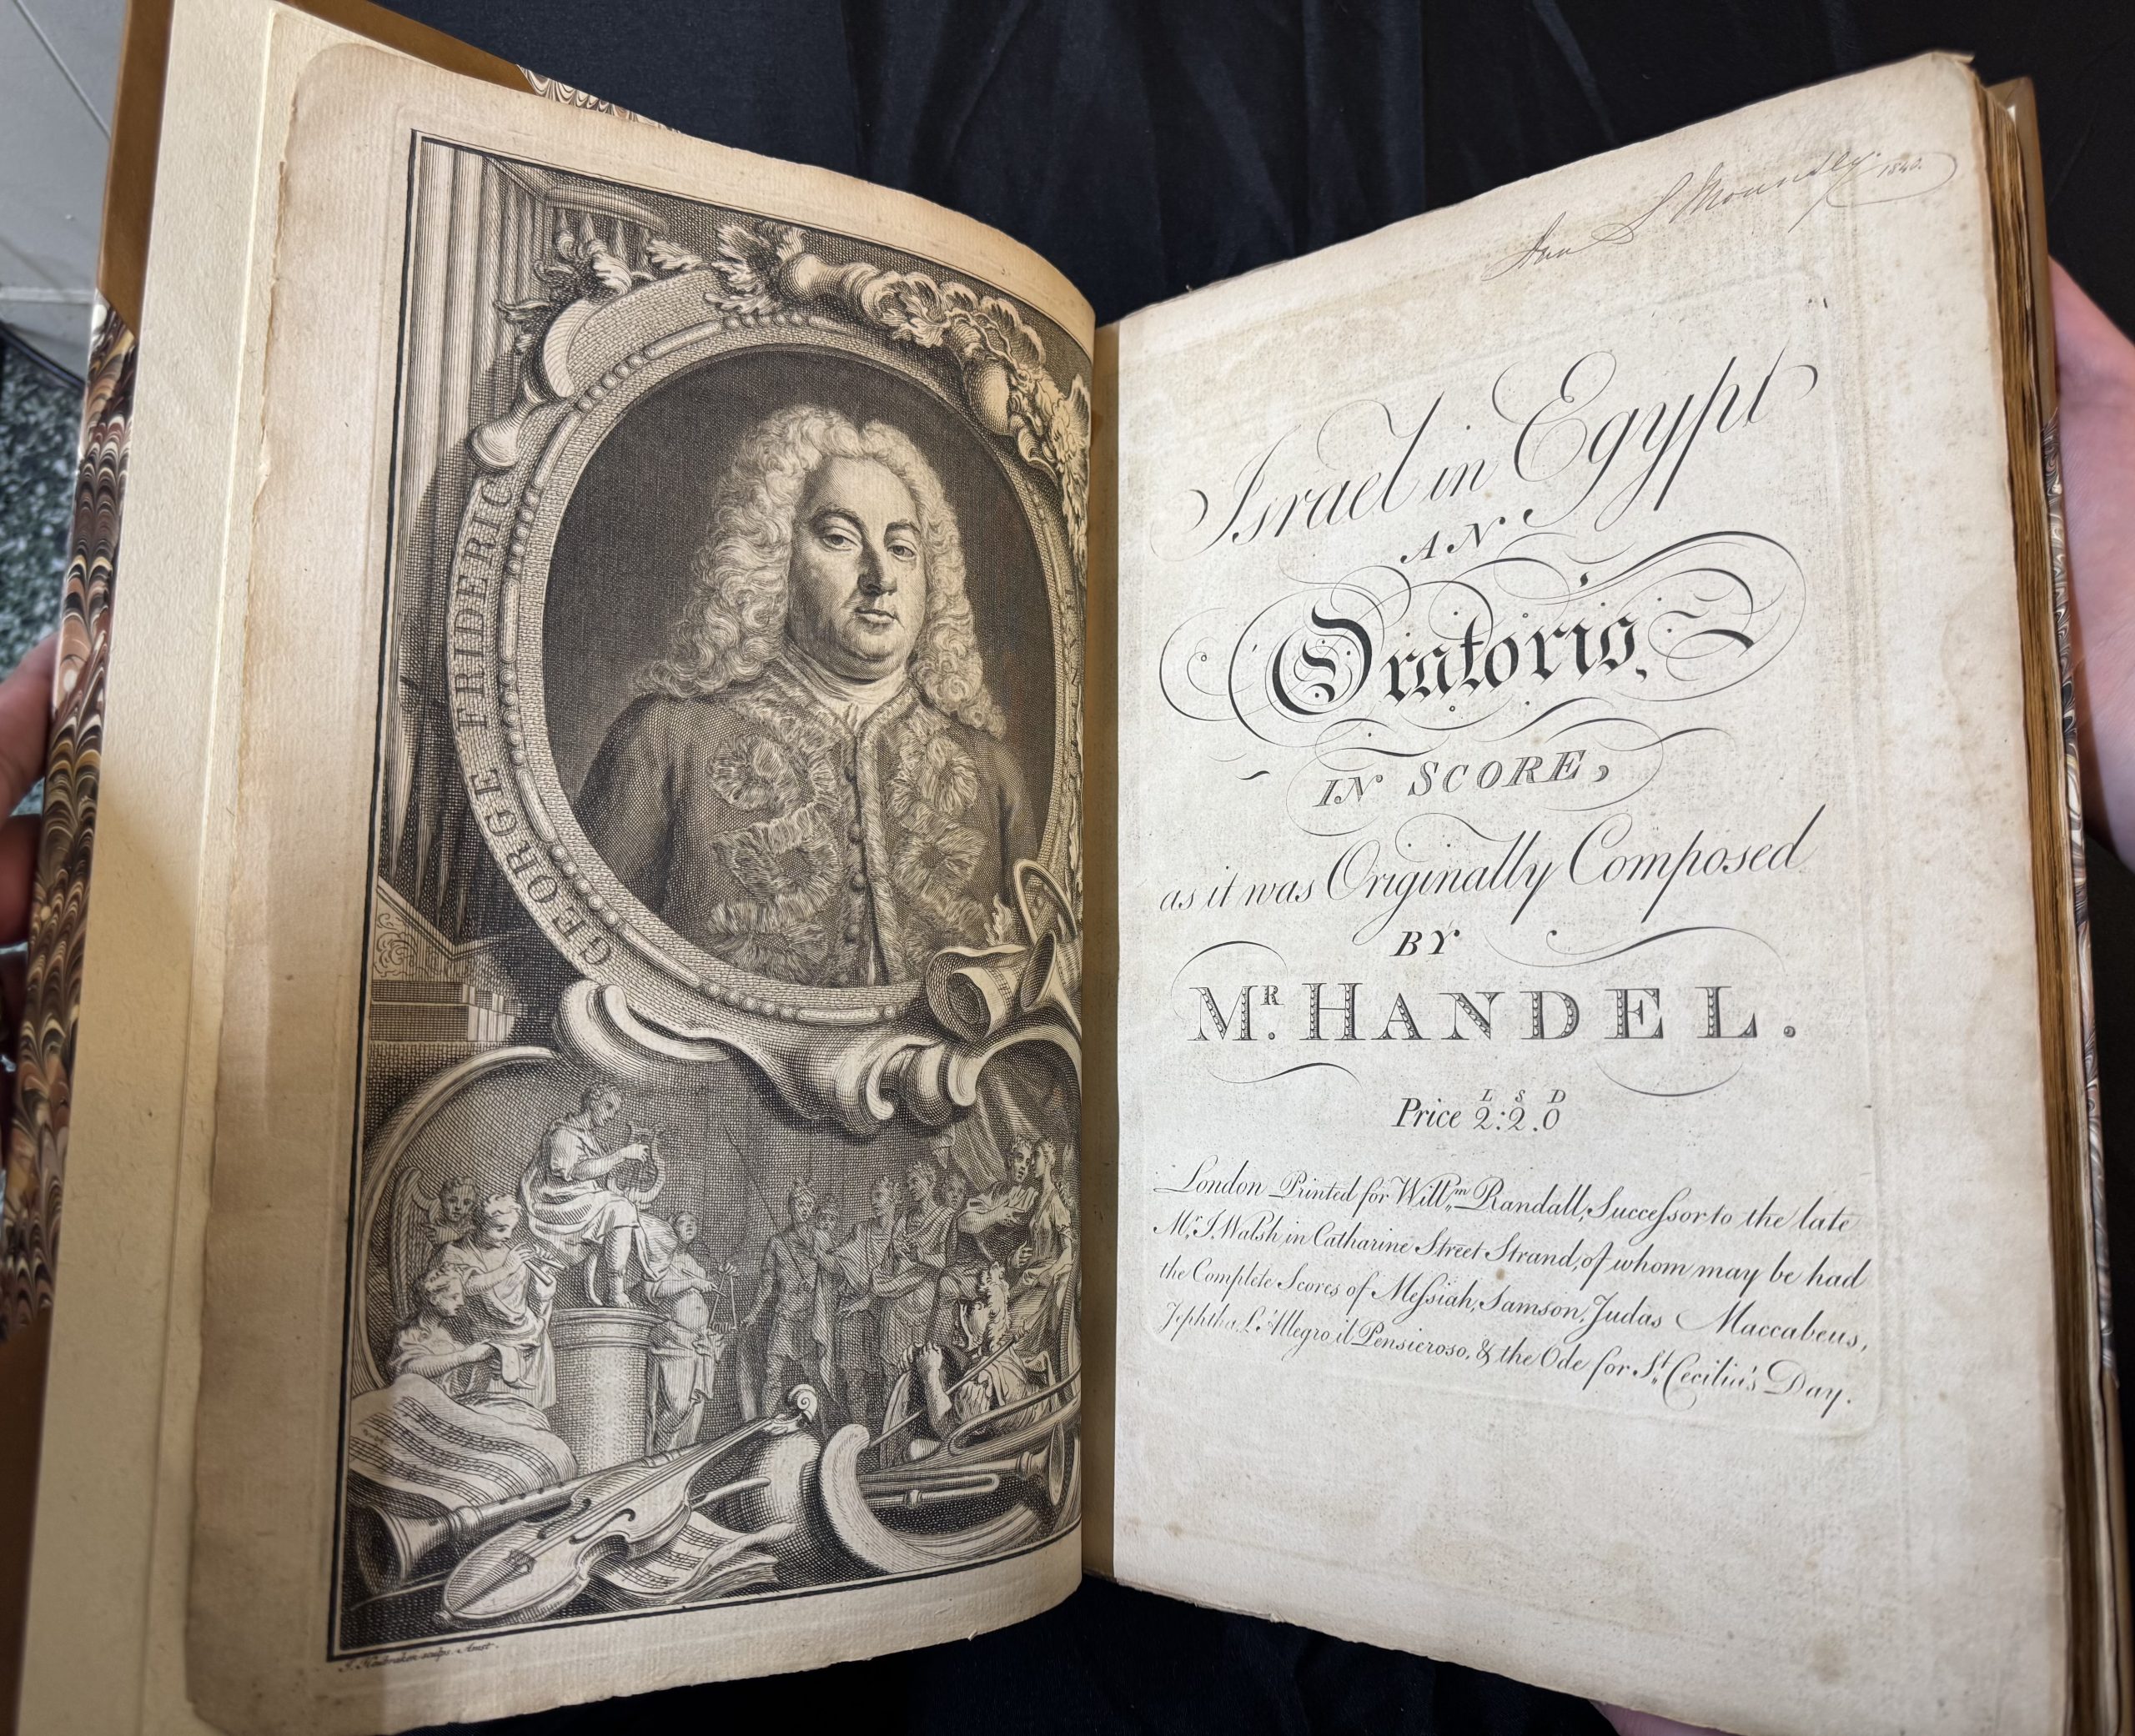 GEORGE FRIDERIC
J. Houbraken sculps. Amst.
1840.
Israel in Egypt
AN
Oratorio,
IN SCORE,
as it was Originally Composed
BY
MR. HANDEL.
L S D
Price 2:2.0
London Printed for Willm Randall, Succeſsor to the late
Mr. J. Walsh in Catharine Street Strand, of whom may be had
the Complete Scores of Meſsiah, Samson, Judas Maccabeus,
Jephtha, L'Allegro il Pensieroso, & the Ode for St. Cecilia's Day.